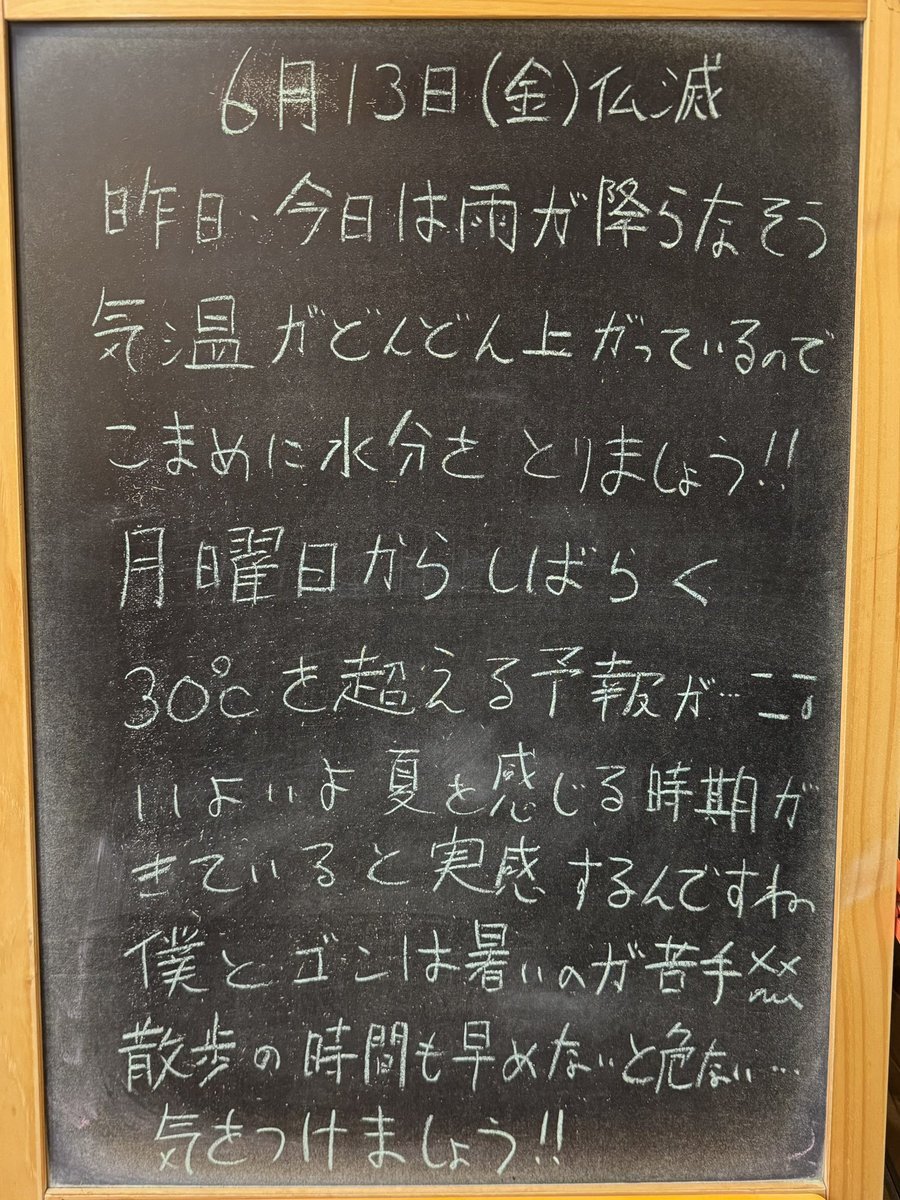 6月13日(金)仏滅
昨日、今日は雨が降らなそう
気温がどんどん上がっているので
こまめに水分をとりましょう!!
月曜日からしばらく
30℃を超える予報が…
いよいよ夏を感じる時期が
きていると実感するんですね
僕とゴンは暑いのが苦手××
散歩の時間も早めないと危ない…
気をつけましょう!!